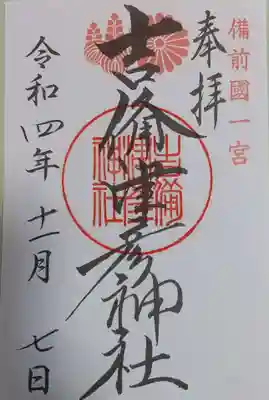 備前國一宮
奉拝
吉備津彦神社
吉備津彦神社
令和四年 十一月 七日